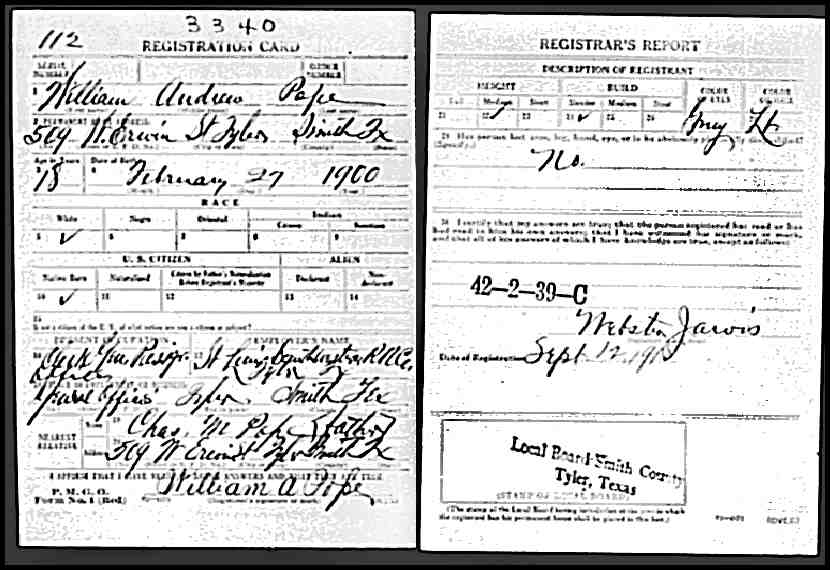 3340
112
REGISTRATION CARD
SERIAL NUMBER
ORDER NUMBER
1 William Andrew Pope
2 PERMANENT HOME ADDRESS:
509 W. Erwin St Tyler Smith Tx
Age in Years Date of Birth
18 February 27 1900
RACE
White Negro Oriental Indian
Citizen
5 ✓ 6 7 8 9
U. S. CITIZEN ALIEN
Native Born Naturalized Citizen by Father's Naturalization Before Registrant's Majority Declarant Non-declarant
10 ✓ 11 12 13 14
15
If not a citizen of the U. S., of what nation are you a citizen or subject?
PRESENT OCCUPATION EMPLOYER'S NAME
Tyler Smith Tex
NEAREST RELATIVE Name Chas. M Pope (Father)
Address 509 W Erwin St Tyler Smith Tx
I AFFIRM THAT I HAVE VERIFIED ABOVE ANSWERS AND THAT THEY ARE TRUE
P. M. G. O.
Form No. 1 (Red)
William A Pope
REGISTRAR'S REPORT
DESCRIPTION OF REGISTRANT
HEIGHT BUILD COLOR OF EYES COLOR OF HAIR
Tall Medium Short Slender Medium Stout
21 22 ✓ 23 24 ✓ 25 26 Grey Lt
29 Has person lost arm, leg, hand, eye, or is he obviously physically disqualified?
(Specify.)
No.
30 I certify that my answers are true; that the person registered has read or has
had read to him his own answers; that I have witnessed his signature or mark,
and that all of his answers of which I have knowledge are true, except as follows:
42-2-39-C
Webster Jarvis
Date of Registration Sept 12, 1918
Local Board Smith County
Tyler, Texas
(STAMP OF LOCAL BOARD)
(The stamp of the Local Board having jurisdiction of the area in which
the registrant has his permanent home shall be placed in this box.)